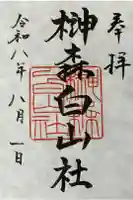 奉拝
榊森白山社
令和八年八月一日